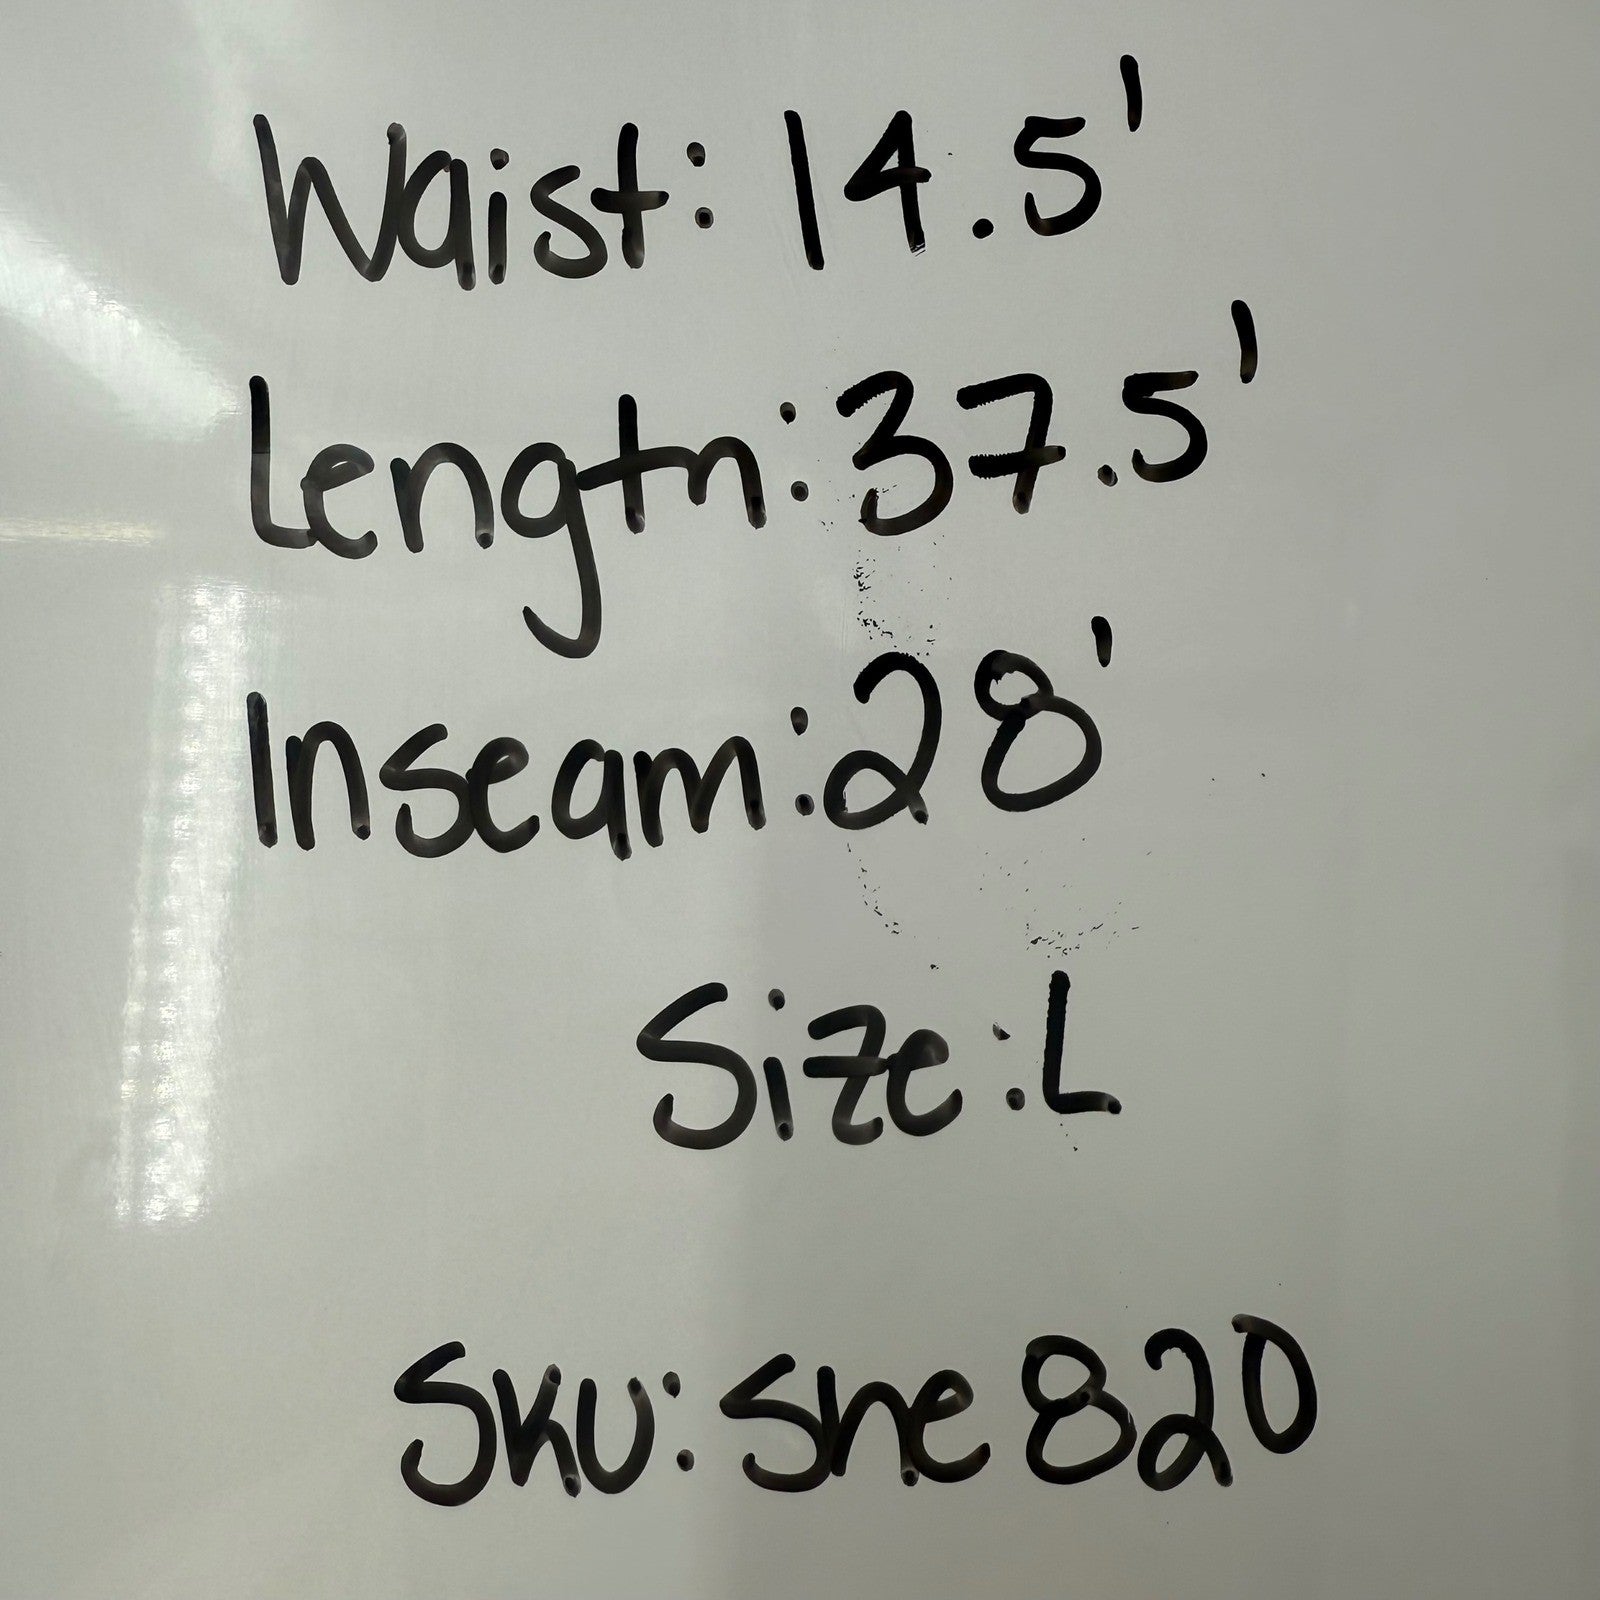 Waist: 14.5'
Length: 37.5'
Inseam: 28'
Size: L
Sku: She 820